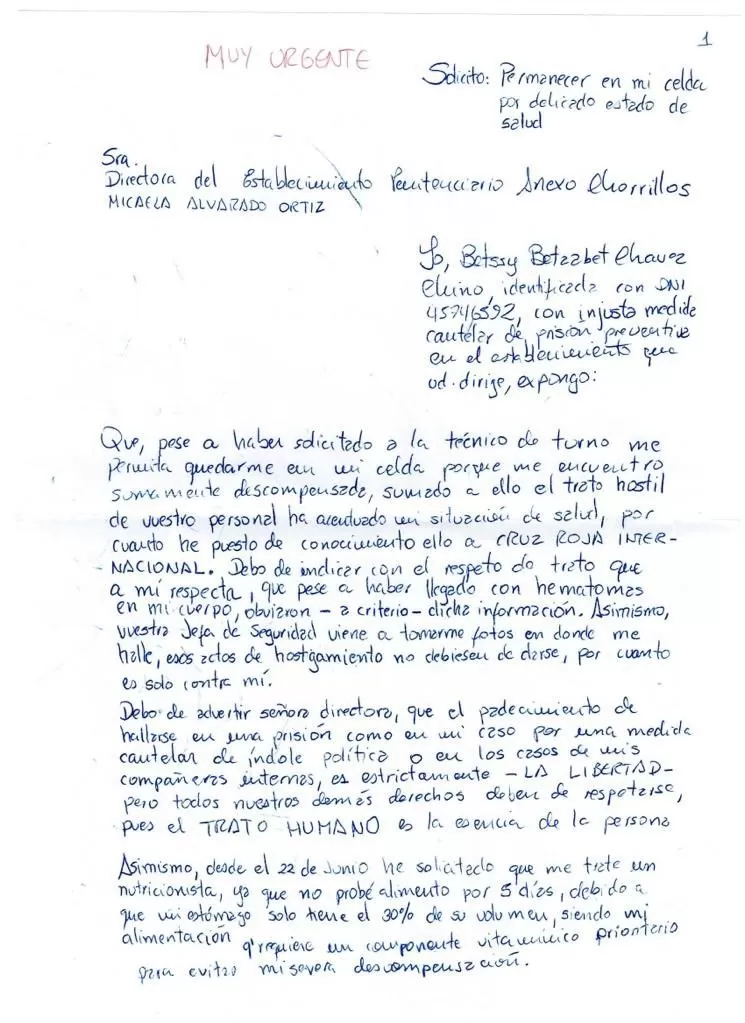 1
MUY URGENTE
Solicito: Permanecer en mi celda
por delicado estado de
salud
Sra.
Directora del Establecimiento Penitenciario Anexo Chorrillos
MICAELA ALVARADO ORTIZ
Yo, Betssy Betzabet Chavez
Chino, identificada con DNI
45746592, con injusta medida
cautelar de prisión preventiva
en el establecimiento que
ud. dirige, expongo:
Que, pese a haber solicitado a la técnico de turno me
permita quedarme en mi celda porque me encuentro
sumamente descompensada, sumado a ello el trato hostil
de vuestro personal ha acentuado mi situación de salud, por
cuanto he puesto de conocimiento ello a CRUZ ROJA INTER-
NACIONAL. Debo de indicar con el respeto do trato que
a mí respecta, que pese a haber llegado con hematomas
en mi cuerpo, obviaron - a criterio - dicha información. Asimismo,
vuestra Jefa de Seguridad viene a tomarme fotos en donde me
halle, esos actos de hostigamiento no debiesen de darse, por cuanto
es solo contra mí.
Debo de advertir señora directora, que el padecimiento de
hallarse en una prisión como en mi caso por una medida
cautelar de índole política o en los casos de mis
compañeras internas, es estrictamente - LA LIBERTAD -
pero todos nuestros demás derechos deben de respetarse,
pues el TRATO HUMANO es la esencia de la persona
Asimismo, desde el 22 de Junio he solicitado que me trate un
nutricionista, ya que no probé alimento por 5 días, debido a
que mi estómago solo tiene el 30% de su volumen, siendo mi
alimentación q' requiere un componente vitamínico prioritario
para evitar mi severa descompensación.